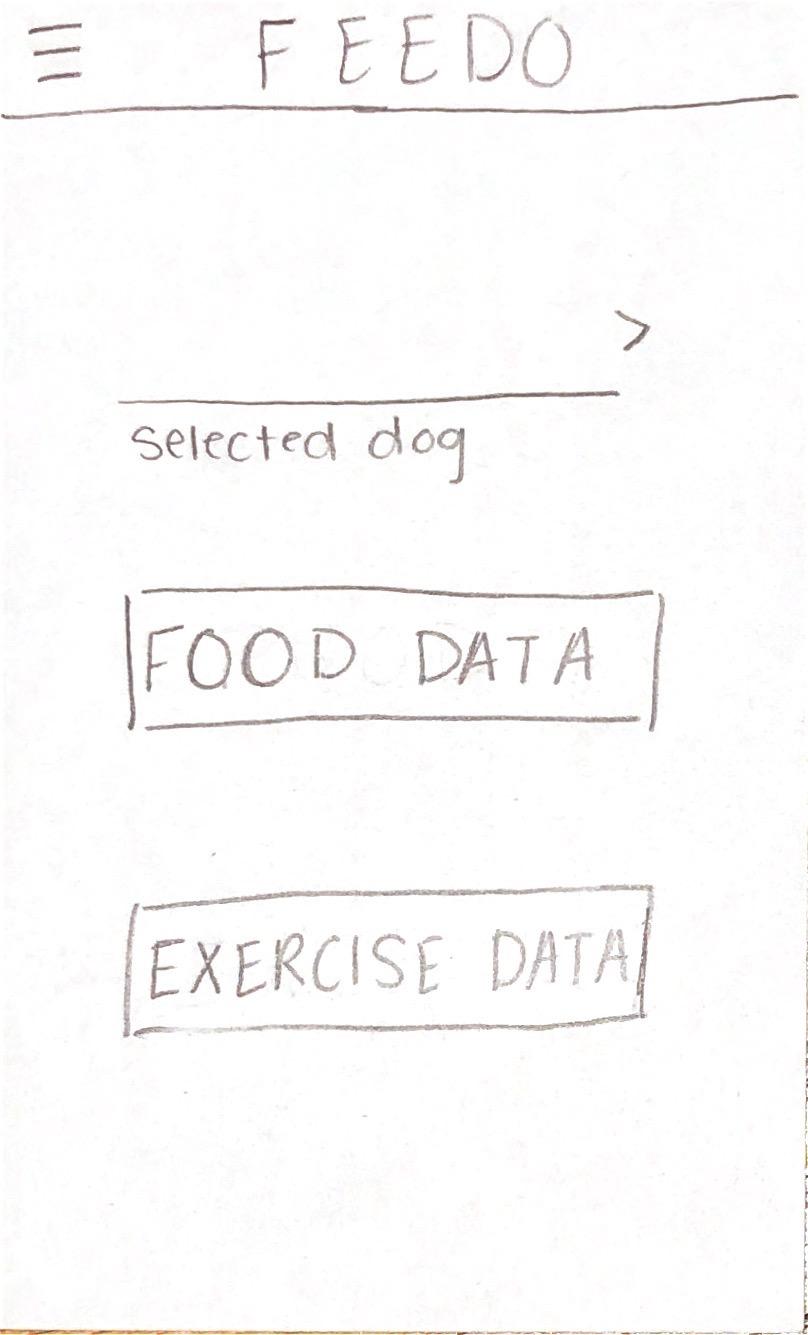 FEEDO
selected dog
FOOD DATA
EXERCISE DATA